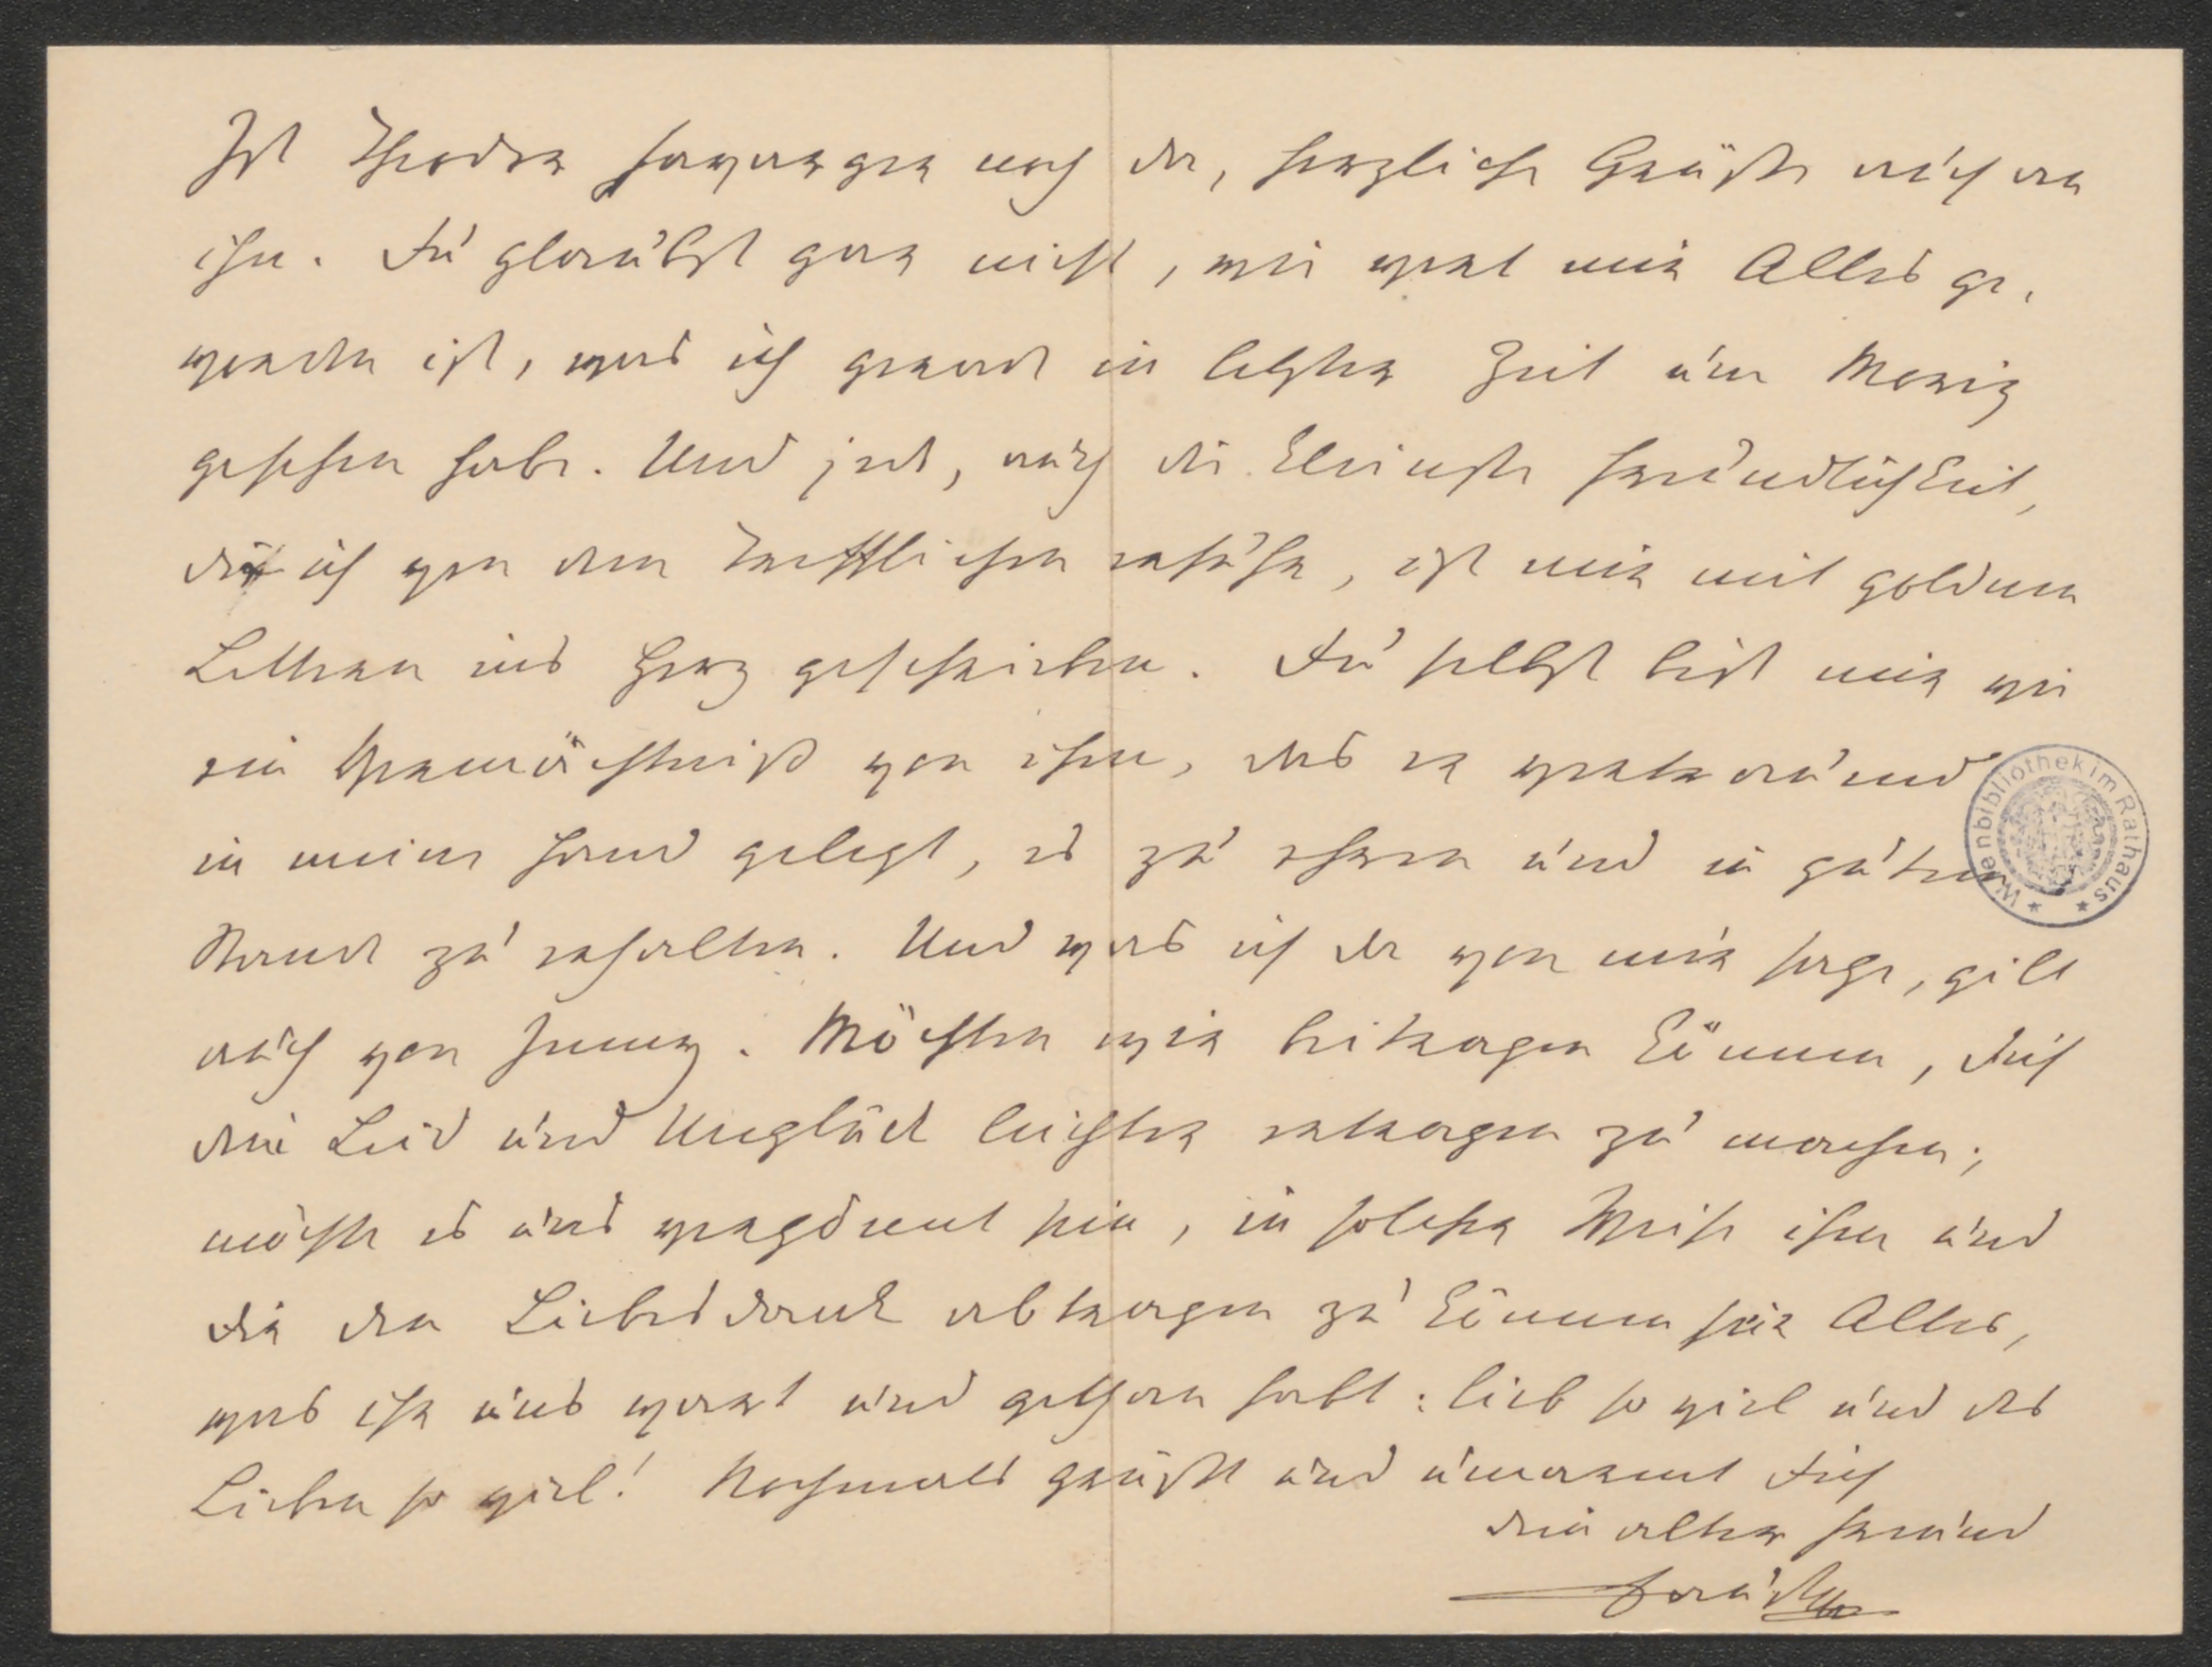 Ist Theodor Hornanger noch da, herzliche Grüße auch an
ihn. Du glaubst gar nicht, wie wert mir Alles ge-
worden ist, was ich gerade in letzter Zeit um Moriz
gesehen habe. Und jede, auch die kleinste Freundlichkeit,
die ich von dem Trefflichen erfuhr, ist mir mit goldnen
Lettern ins Herz geschrieben. Du selbst bist mir wie
ein Vermächtniß von ihm, das er vertrauend
in meine Hand gelegt, es zu ehren und in gutem
Stande zu erhalten. Und was ich da von mir sage, gilt
auch von Jenny. Möchten wir beitragen können, Dich
dein Leid und Unglück leichter ertragen zu machen;
möchte es uns vergönnt sein, in solcher Weise ihm und
Dir den Liebesdank abtragen zu können für Alles,
was ihr uns wart und gethan habt: lieb so viel und des
Lieben so viel! Nochmals grüßt und umarmt Dich
dein alter Freund
Wienbibliothek im Rathaus